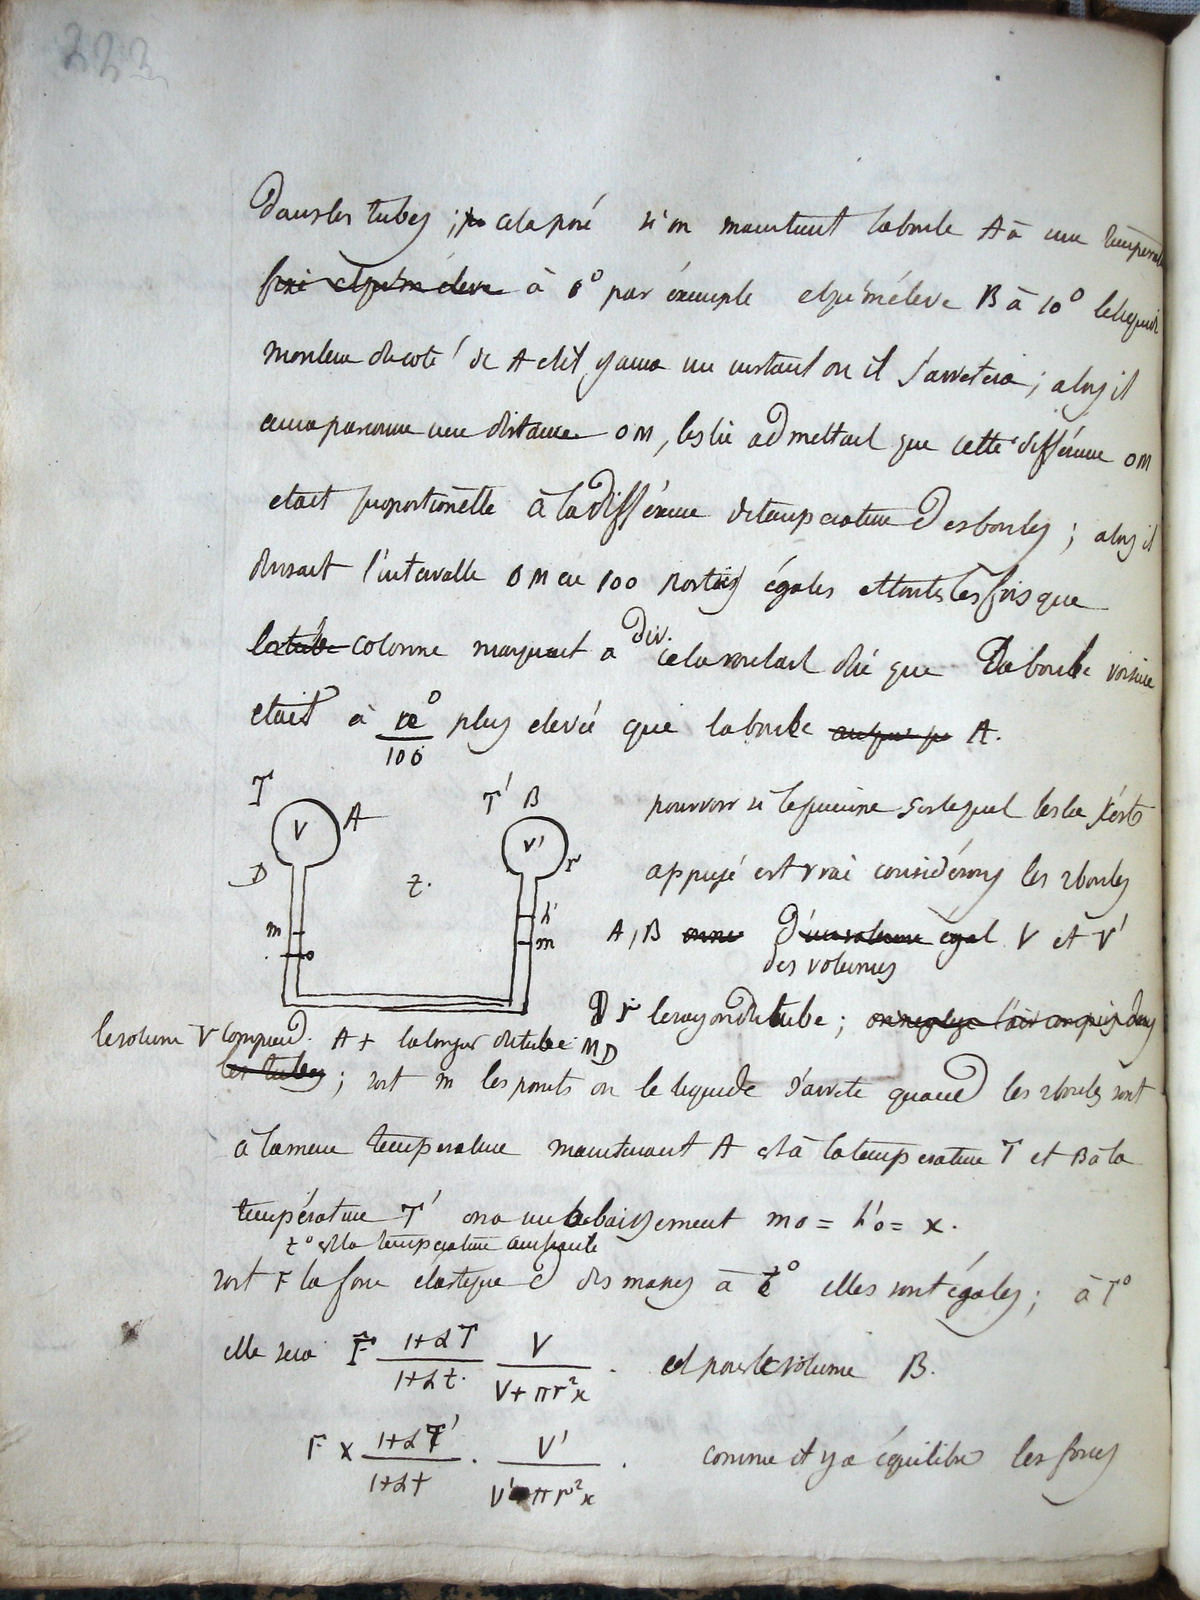 222
dans les tubes ; cela posé si on maintient la boule A à une tempera
fixe et qu'on éleve à 0° par éxemple et qu'on éleve B à 10° le liquide
montera du coté de A et il y aura un instant ou il s'arretera ; alors il
aura parcouru une distance OM, leslie admettait que cette différence OM
etait proportionelle à la différence de température des boules ; alors il
divisait l'intervalle OM en 100 parties égales et toutes les fois que
le tube colonne marquait a div. cela voulait dire que la boule voisine
etait à 10°/100 plus elevée que la boule A.
T V A
T' B V' r
D t.
m o
h' m
pour voir si le principe sur lequel leslie s'est
appuyé est vrai considérons les 2 boules
A, B d'un volume égal V et V'
des volumes
r le rayon du tube ; on neglige l'air compris dans
le volume V comprend A + la longr du tube MD
les tubes ; soit m les points ou le liquide s'arrete quand les 2 boules sont
à la meme temperature maintenant A est à la temperature T et B à la
température T' on a un abaissement mo = h'o = x.
t° est la temperature ambiante
soit F la force élastique des masses à t° elles sont égales ; à T°
elle sera F (1+αT)/(1+αt) · V/(V+πr²x) . et pour le volume B.
F × (1+αT')/(1+αt) · V'/(V'-πr²x) . comme il y a équilibre les forces